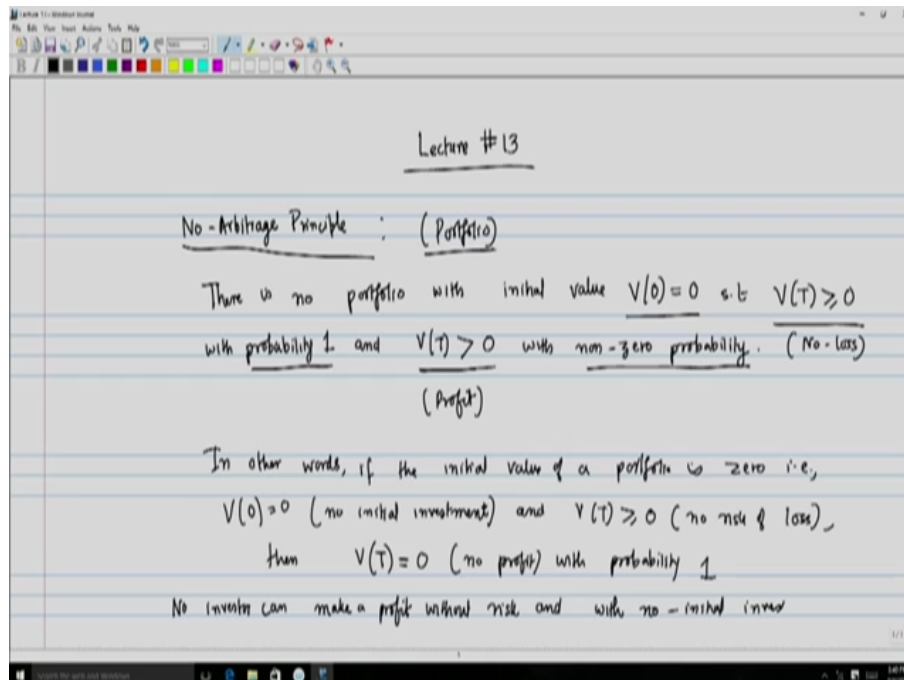 Lecture 13 - Windows Journal
File Edit View Insert Actions Tools Help
B I
Lecture #13
No-Arbitrage Principle : (Portfolio)
There is no portfolio with initial value V(0) = 0 s.t V(T) ≥ 0
with probability 1 and V(T) > 0 with non-zero probability. (No-loss)
(Profit)
In other words, if the initial value of a portfolio is zero i.e.,
V(0)=0 (no initial investment) and V(T) ≥ 0 (no risk of loss),
then V(T) = 0 (no profit) with probability 1
No investor can make a profit without risk and with no-initial inves
1/1
Search the web and Windows